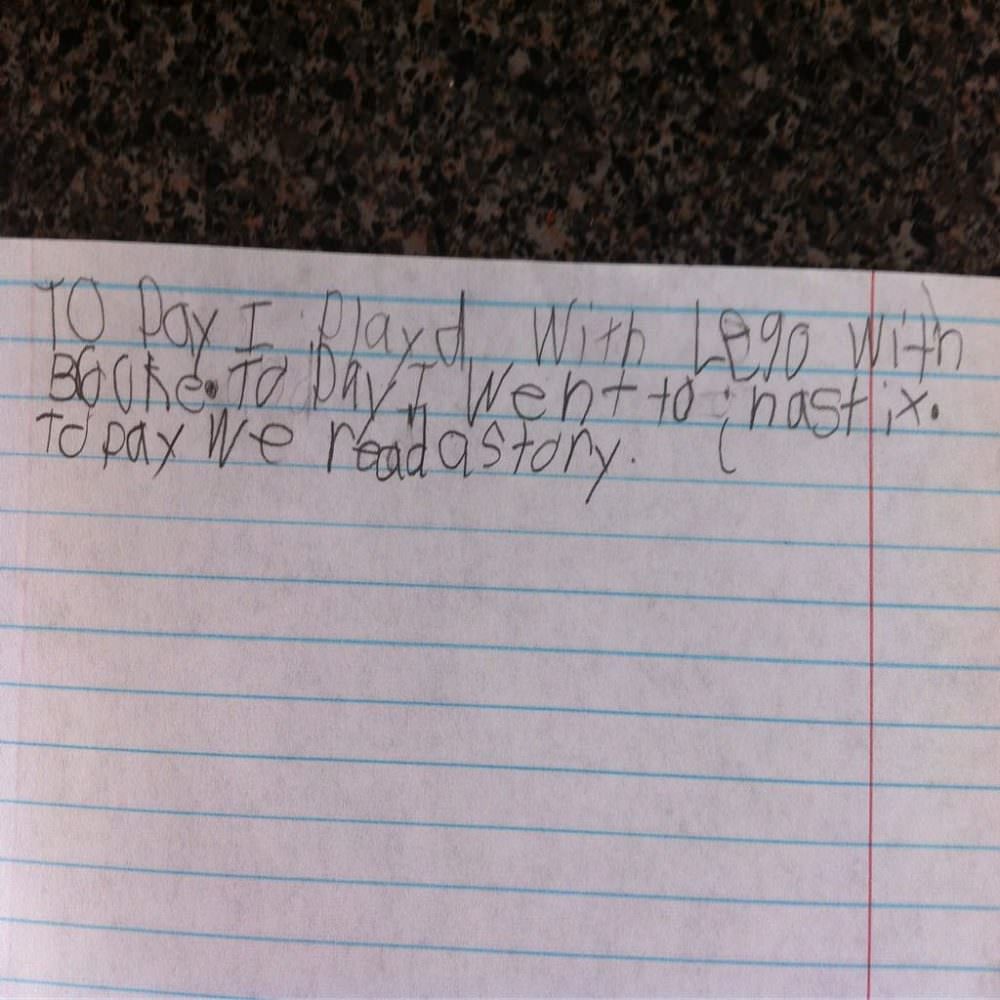 TO Day I Playd With Lego With
BOOKe. To Day I Went to jnastix.
To pay We read a story.